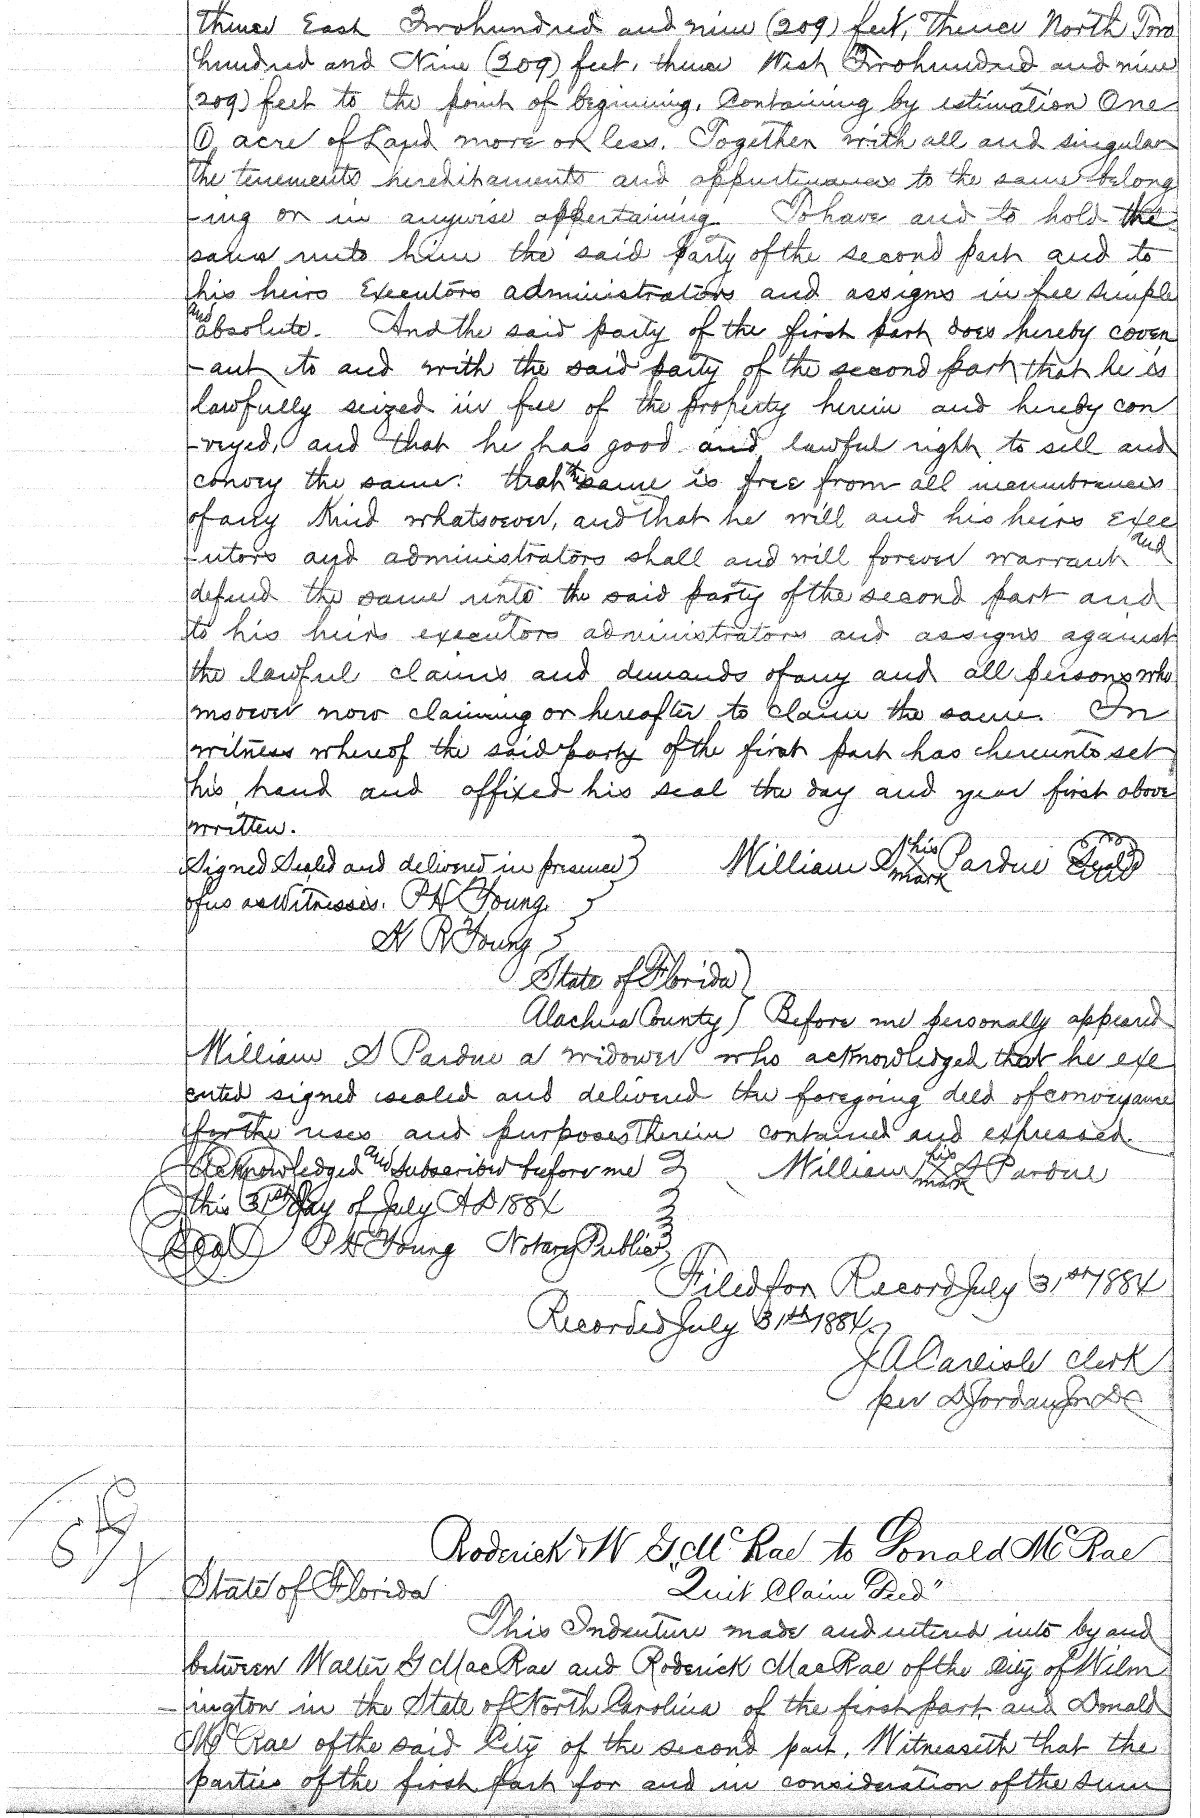 thence East Twohundred and nine (209) feet, thence North Two
hundred and Nine (209) feet, thence West Twohundred and nine
(209) feet to the point of begining, Containing by estimation One
(1) acre of Land more or less. Together with all and singular
the tenements hereditaments and appurtenances to the same belong
-ing or in anywise appertaining. To have and to hold the
same unto him the said party of the second part and to
his heirs Executors administrators and assigns in fee simple
and absolute. And the said party of the first part does hereby coven
-ant to and with the said party of the second part that he is
lawfully seized in fee of the property herein and hereby con
-veyed, and that he has good and lawful right to sell and
convey the same: that the same is free from all incumbrances
of any Kind whatsoever, and that he will and his heirs Exec
-utors and administrators shall and will forever warrant and
defend the same unto the said party of the second part and
to his heirs executors administrators and assigns against
the lawful claims and demands of any and all persons who
msoever now claiming or hereafter to claim the same. In
witness whereof the said party of the first part has hereunto set
his hand and affixed his seal the day and year first above
written.
Signed Sealed and delivered in presence William S his X mark Pardue Seal
of us as Witnesses. P H Young
N R Young
State of Florida
Alachua County Before me personally appeared
William S Pardue a widower who acknowledged that he exe
cuted signed sealed and delivered the foregoing deed of conveyance
for the uses and purposes therein contained and expressed.
Acknowledged and subscribed before me William his X mark S Pardue
this 31st day of July A D 1884
Seal P H Young Notary Public
Filed for Record July 31st 1884
Recorded July 31th 1884
J A Carlisle Clerk
per D Jordan Jr D C
Roderick & W G McRae to Donald McRae
State of Florida "Quit Claim Deed"
This Indenture made and entered into by and
between Walter G MacRae and Roderick MacRae of the City of Wilm
-ington in the State of North Carolina of the first part and Donald
McRae of the said City of the second part, Witnesseth that the
parties of the first part for and in consideration of the sum